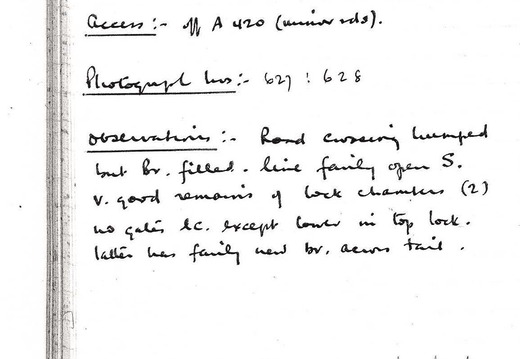 Access :- off A 420 (minor rds).
Photograph nos :- 627 : 628
Observations :- Road crossing humped
but br. filled. line fairly open S.
v. good remains of lock chambers (2)
no gates &c. except lower in top lock.
latter has fairly new br. across tail.